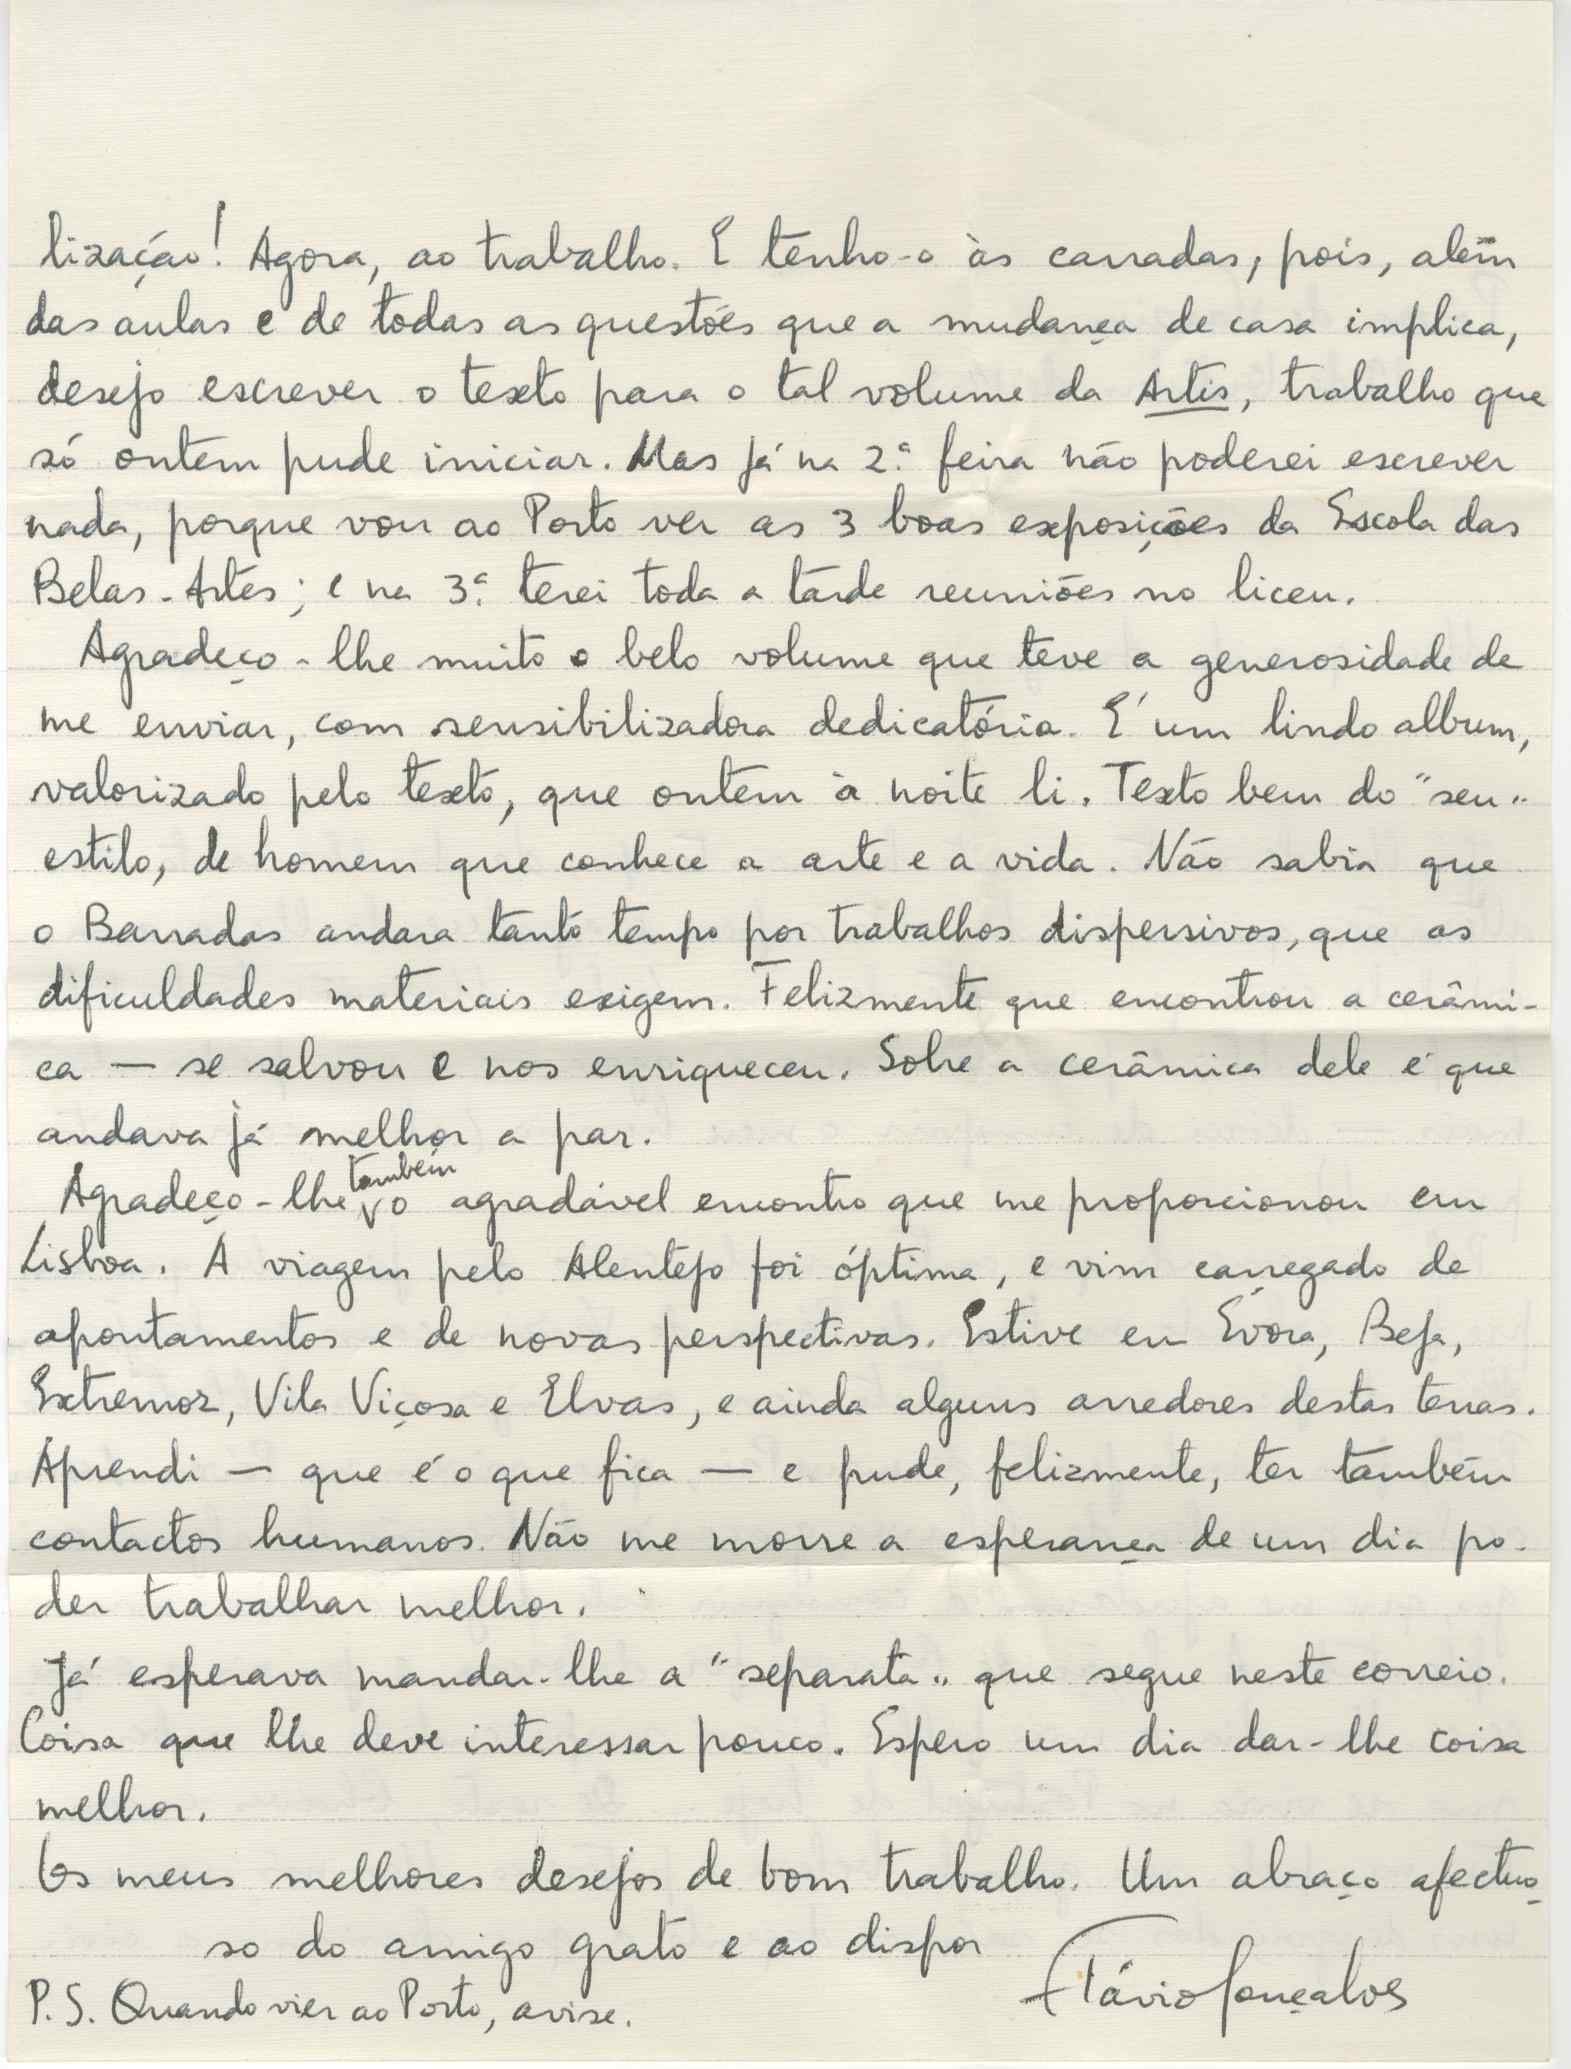 lização! Agora, ao trabalho. E tenho-o às carradas, pois, além
das aulas e de todas as questões que a mudança de casa implica,
desejo escrever o texto para o tal volume da Artis, trabalho que
só ontem pude iniciar. Mas já na 2.ª feira não poderei escrever
nada, porque vou ao Porto ver as 3 boas exposições da Escola das
Belas-Artes; e na 3.ª terei toda a tarde reuniões no liceu.
Agradeço-lhe muito o belo volume que teve a generosidade de
me enviar, com sensibilizadora dedicatória. É um lindo album,
valorizado pelo texto, que ontem à noite li. Texto bem do "seu"
estilo, de homem que conhece a arte e a vida. Não sabia que
o Barradas andara tanto tempo por trabalhos dispersivos, que as
dificuldades materiais exigem. Felizmente que encontrou a cerâmi-
ca — se salvou e nos enriqueceu. Sobre a cerâmica dele é que
andava já melhor a par.
Agradeço-lhe também o agradável encontro que me proporcionou em
Lisboa. A viagem pelo Alentejo foi óptima, e vim carregado de
apontamentos e de novas perspectivas. Estive em Évora, Beja,
Extremoz, Vila Viçosa e Elvas, e ainda alguns arredores destas terras.
Aprendi — que é o que fica — e pude, felizmente, ter também
contactos humanos. Não me morre a esperança de um dia po-
der trabalhar melhor.
Já esperava mandar-lhe a "separata" que segue neste correio.
Coisa que lhe deve interessar pouco. Espero um dia dar-lhe coisa
melhor.
Os meus melhores desejos de bom trabalho. Um abraço afectuo-
so do amigo grato e ao dispor
Flávio Gonçalves
P.S. Quando vier ao Porto, avise.